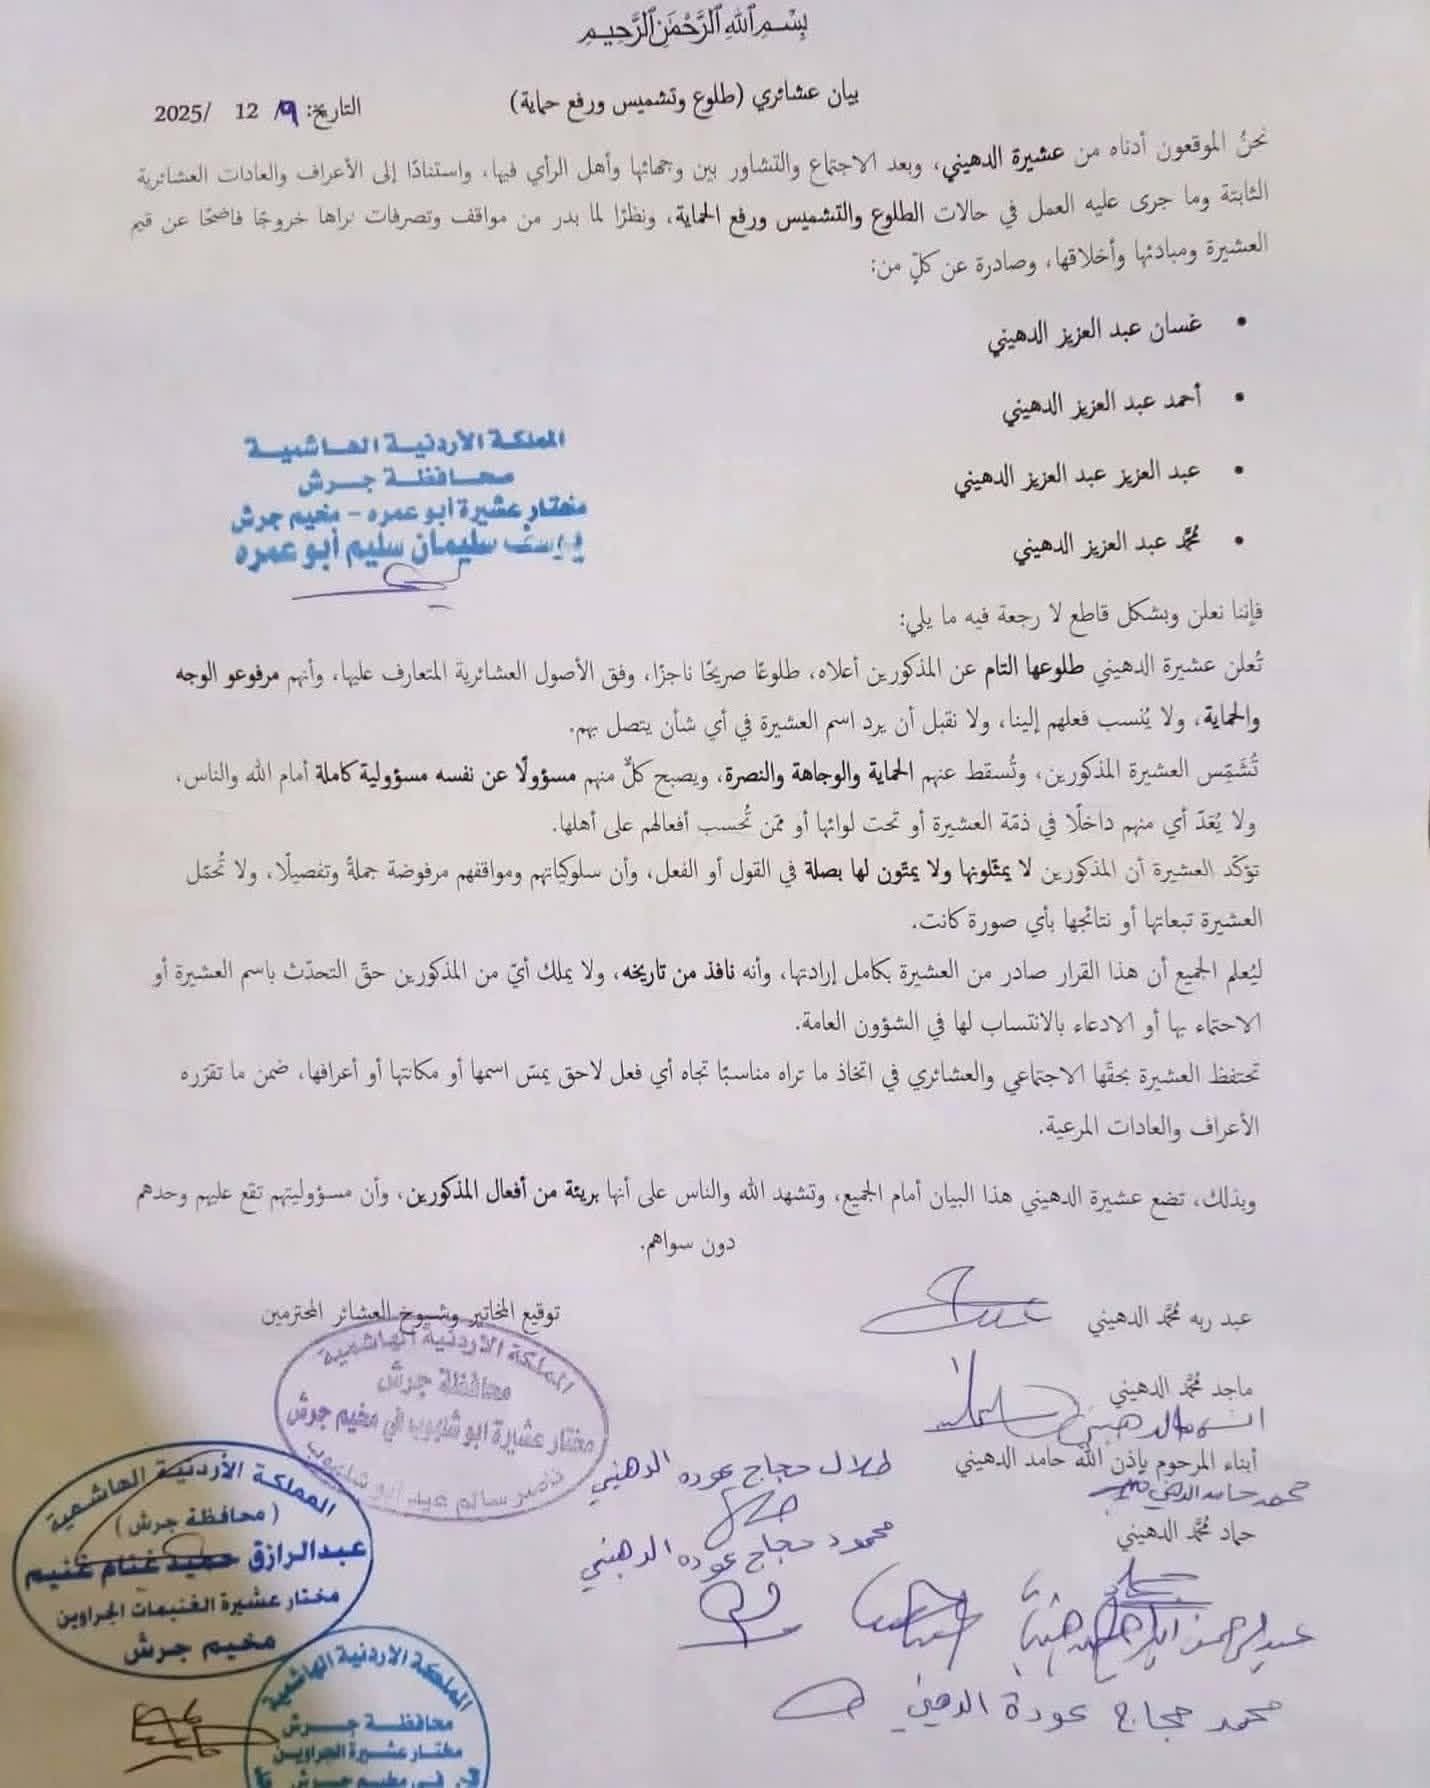 بِسْمِ ٱللَّهِ ٱلرَّحْمَٰنِ ٱلرَّحِيمِ
بيان عشائري (طلوع وتشميس ورفع حماية)
التاريخ: 9/ 12 /2025
نحنُ الموقعون أدناه من عشيرة الدهيني، وبعد الاجتماع والتشاور بين وجهائها وأهل الرأي فيها، واستنادًا إلى الأعراف والعادات العشائرية
الثابتة وما جرى عليه العمل في حالات الطلوع والتشميس ورفع الحماية، ونظرًا لما بدر من مواقف وتصرفات نراها خروجًا فاضحًا عن قيم
العشيرة ومبادئها وأخلاقها، وصادرة عن كلٍّ من:
• غسان عبد العزيز الدهيني
• أحمد عبد العزيز الدهيني
• عبد العزيز عبد العزيز الدهيني
• مُحمَّد عبد العزيز الدهيني
المملكة الأردنية الهاشمية
محافظة جرش
مختار عشيرة ابو عمره - مخيم جرش
يوسف سليمان سليم أبو عمره
فإننا نعلن وبشكل قاطع لا رجعة فيه ما يلي:
تُعلن عشيرة الدهيني طلوعها التام عن المذكورين أعلاه، طلوعًا صريحًا ناجزًا، وفق الأصول العشائرية المتعارف عليها، وأنهم مرفوعو الوجه
والحماية، ولا يُنسب فعلهم إلينا، ولا نقبل أن يرد اسم العشيرة في أي شأن يتصل بهم.
تُشَمِّس العشيرة المذكورين، وتُسقط عنهم الحماية والوجاهة والنصرة، ويصبح كلٌّ منهم مسؤولًا عن نفسه مسؤولية كاملة أمام الله والناس،
ولا يُعَدّ أي منهم داخلًا في ذمّة العشيرة أو تحت لوائها أو ممّن تُحسب أفعالهم على أهلها.
تؤكّد العشيرة أن المذكورين لا يمثّلونها ولا يمتّون لها بصلة في القول أو الفعل، وأن سلوكياتهم ومواقفهم مرفوضة جملةً وتفصيلًا، ولا تُحمّل
العشيرة تبعاتها أو نتائجها بأي صورة كانت.
ليُعلم الجميع أن هذا القرار صادر من العشيرة بكامل إرادتها، وأنه نافذ من تاريخه، ولا يملك أيّ من المذكورين حقّ التحدّث باسم العشيرة أو
الاحتماء بها أو الادعاء بالانتساب لها في الشؤون العامة.
تحتفظ العشيرة بحقّها الاجتماعي والعشائري في اتخاذ ما تراه مناسبًا تجاه أي فعل لاحق يمسّ اسمها أو مكانتها أو أعرافها، ضمن ما تقرّره
الأعراف والعادات المرعية.
وبذلك، تضع عشيرة الدهيني هذا البيان أمام الجميع، وتشهد الله والناس على أنها بريئة من أفعال المذكورين، وأن مسؤوليتهم تقع عليهم وحدهم
دون سواهم.
توقيع المخاتير وشيوخ العشائر المحترمين
عبد ربه مُحمَّد الدهيني
ماجد مُحمَّد الدهيني
أبناء المرحوم بإذن الله حامد الدهيني
محمد حامد الدهيني
حماد مُحمَّد الدهيني
طلال حجاج عوده الدهيني
محمود حجاج عوده الدهيني
محمد حجاج عودة الدهيني
المملكة الأردنية الهاشمية
محافظة جرش
مختار عشيرة ابو شلهوب في مخيم جرش
المملكة الأردنية الهاشمية
(محافظة جرش)
عبدالرازق حميد غنام غنيم
مختار عشيرة الغنيمات الجراوين
مخيم جرش
المملكة الأردنية الهاشمية
محافظة جرش
مختار عشيرة الجراوين
في مخيم جرش